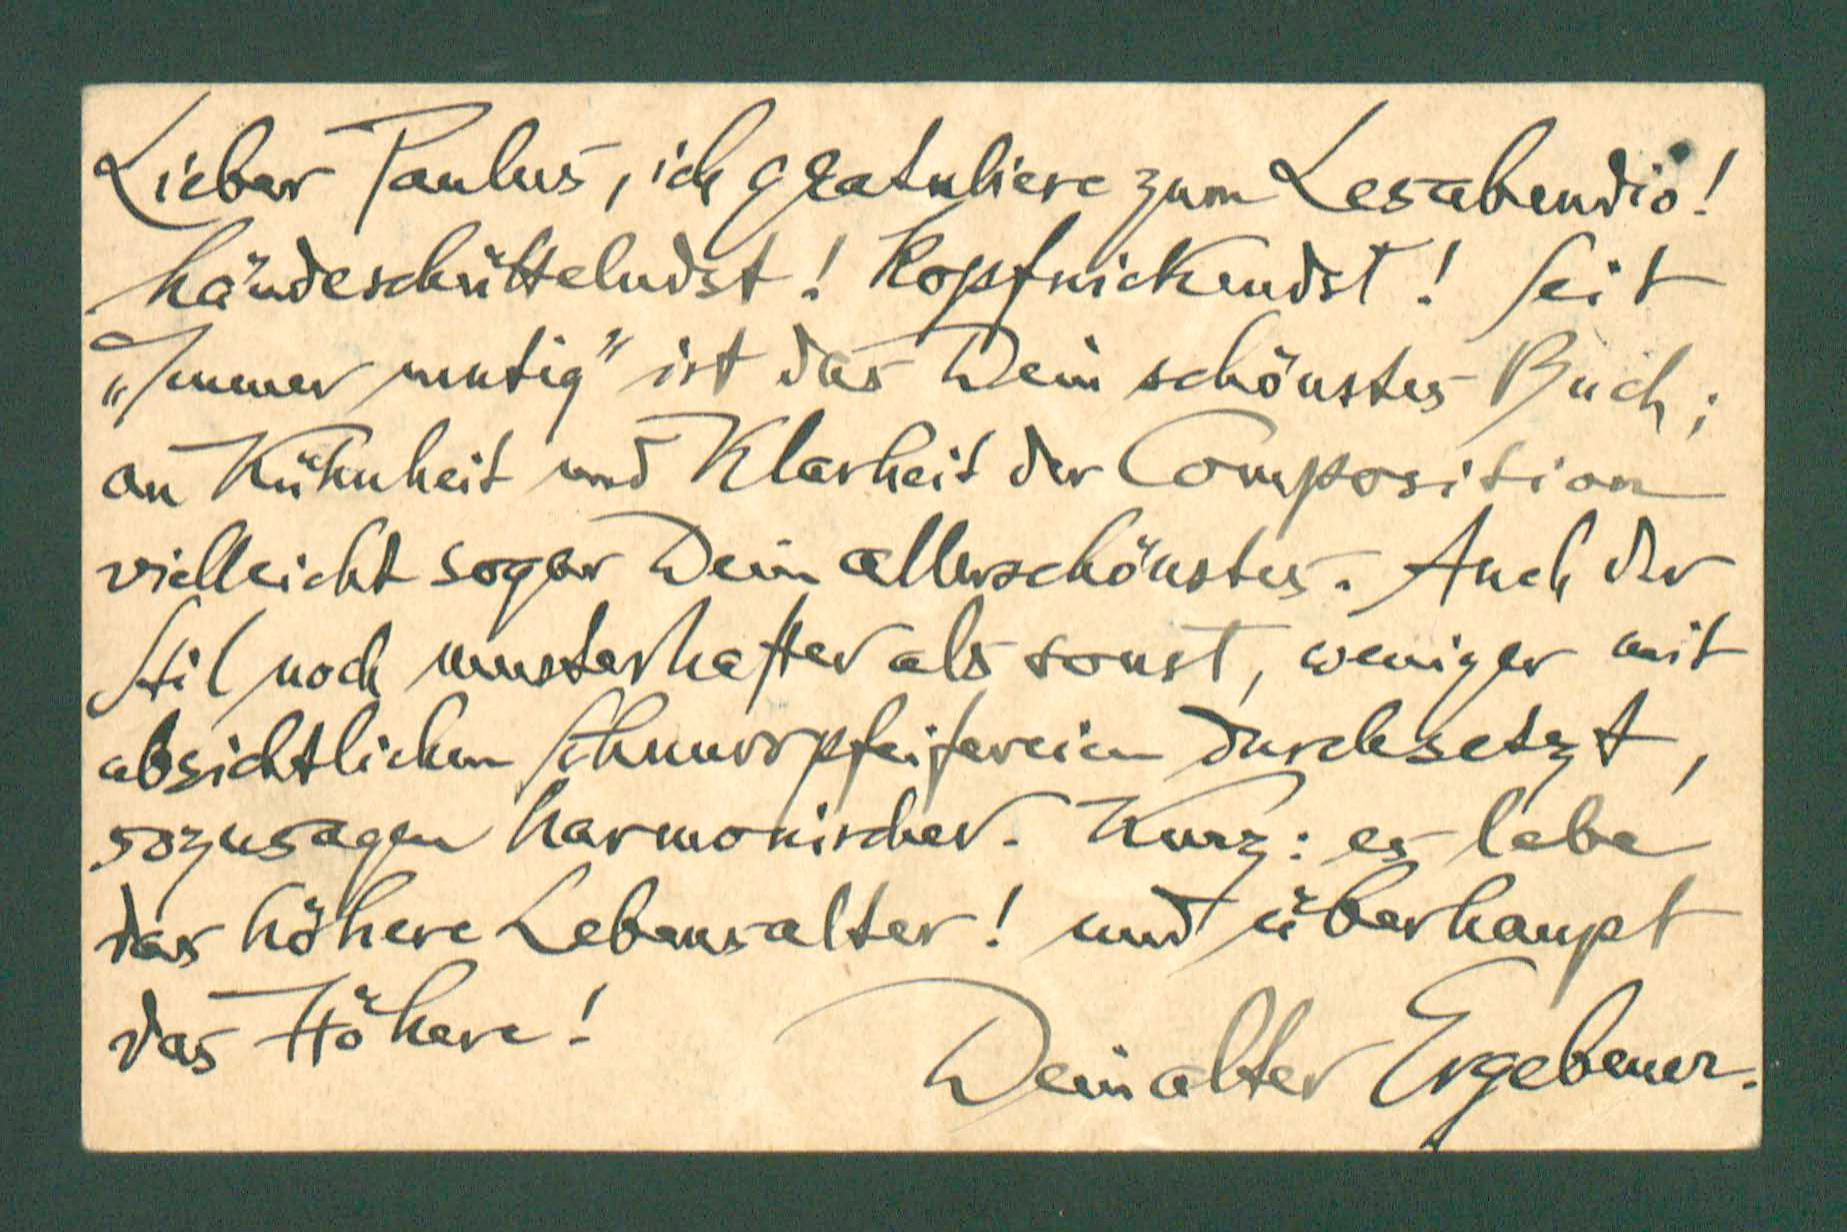 Lieber Paulus, ich gratuliere zum Lesabendio!
händeschüttelndst! Kopfnickendst! Seit
„Immer mutig" ist das Dein schönstes Buch;
an Kühnheit und Klarheit der Composition
vielleicht sogar Dein allerschönstes. Auch der
Stil noch musterhafter als sonst, weniger mit
absichtlichen Schnurrpfeifereien durchsetzt,
sozusagen harmonischer. Kurz: es lebe
das höhere Lebensalter! und überhaupt
das Höhere!
Dein alter Ergebener.